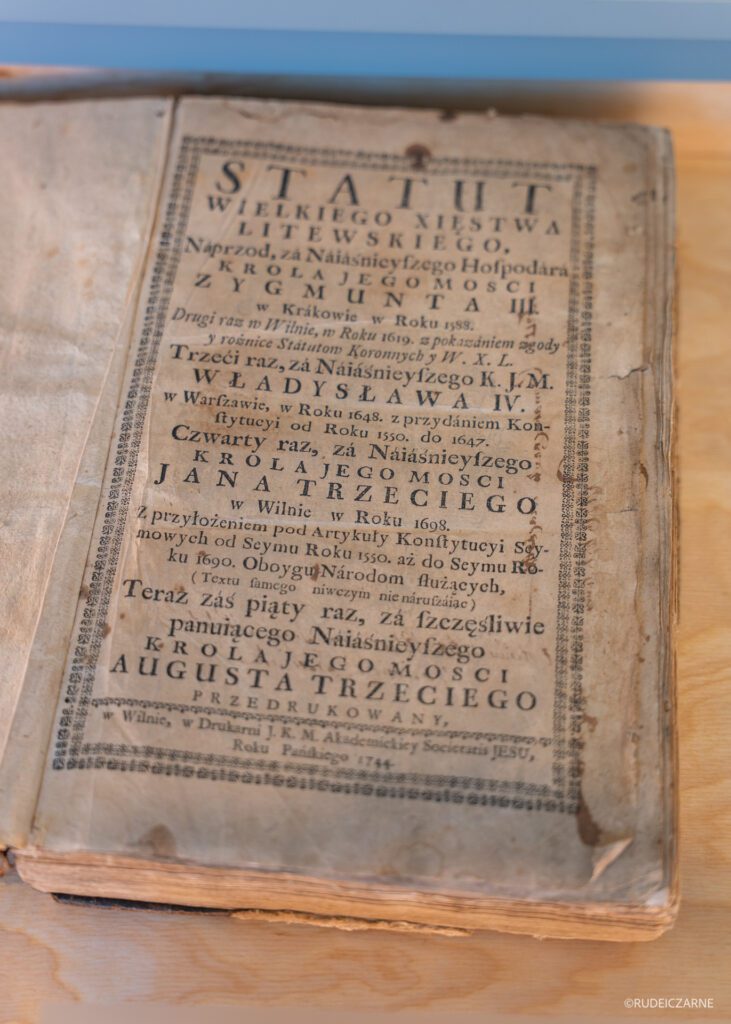 STATUT
WIELKIEGO XIĘSTWA
LITEWSKIEGO,
Náprzod, zá Náiáśnieyſzego Hoſpodárá
KROLA JEGO MOSCI
ZYGMUNTA III.
w Krákowie w Roku 1588.
Drugi raz w Wilnie, w Roku 1619. z pokazániem zgody
y rożnice Státutow Koronnych y W. X. L.
Trzeći raz, zá Náiáśnieyſzego K. J. M.
WŁADYSŁAWA IV.
w Warſzawie, w Roku 1648. z przydániem Kon-
ſtytucyi od Roku 1550. do 1647.
Czwarty raz, zá Náiáśnieyſzego
KRÓLA JEGO MOSCI
JANA TRZECIEGO
w Wilnie w Roku 1698.
Z przyłożeniem pod Artykuły Konſtytucyi Sey-
mowych od Seymu Roku 1550. aż do Seymu Ro-
ku 1690. Oboygu Národom ſłużących,
(Textu ſamego niwczym nie náruſzáiąc)
Teraz záś piąty raz, zá ſzczęśliwie
panuiącego Náiáśnieyſzego
KROLA JEGO MOSCI
AUGUSTA TRZECIEGO
PRZEDRUKOWANY,
w Wilnie, w Drukarni J. K. M. Akademickiey Societatis JESU,
Roku Pańſkiego 1744.
©RUDEICZARNE